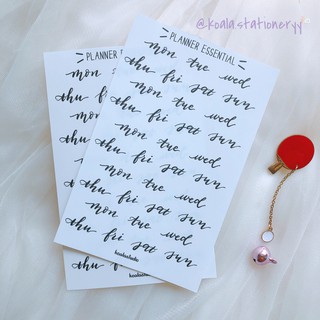 @koala.stationeryy
PLANNER ESSENTIAL
mon tue wed
thu fri sat sun
mon tue wed
thu fri sat sun
mon tue wed
thu fri sat sun
mon tue wed
thu fri sat sun
PLANNER
mon
thu
mon
thu
mon
thu
mon
thu